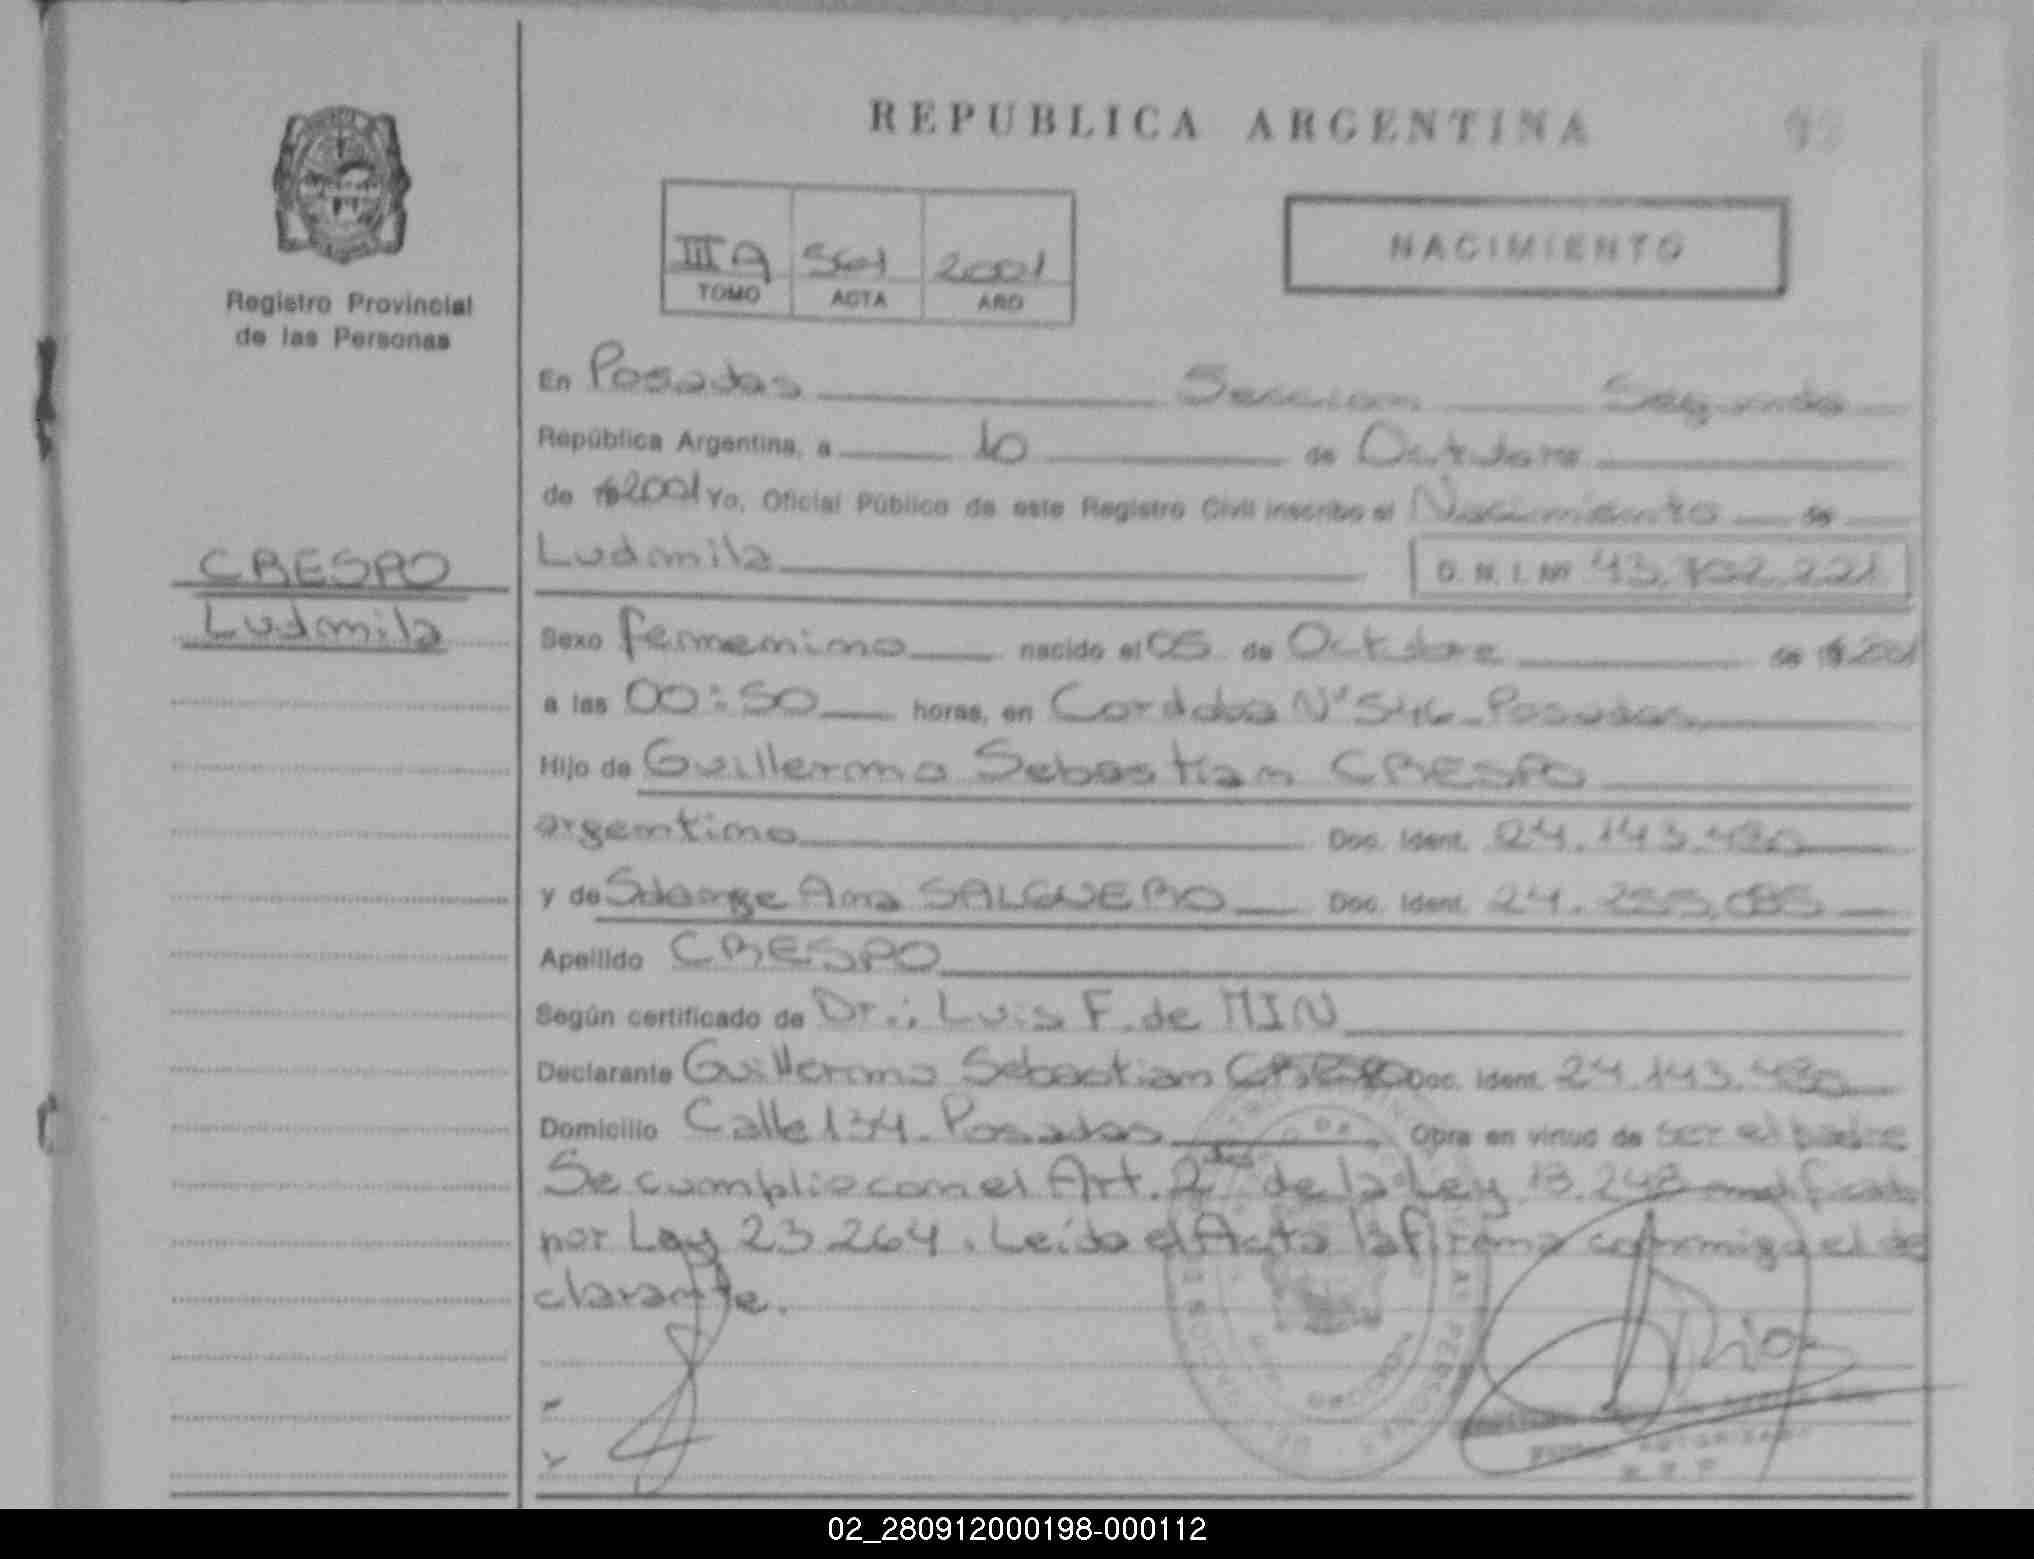 REPUBLICA ARGENTINA
Registro Provincial
de las Personas
III A 561 2001
TOMO ACTA AÑO
NACIMIENTO
CRESPO
Ludmila
En Posadas Seccion Segunda
República Argentina, a 10 de Octubre
de 2001 Yo, Oficial Público de este Registro Civil inscribo el Nacimiento de
Ludmila D. N. I. Nº 43.702.221
Sexo femenino nacido el 05 de Octubre de 2001
a las 00:50 horas, en Cordoba Nº 546 Posadas
Hijo de Guillermo Sebastian CRESPO
argentino Doc. Ident. 24.143.430
y de Solange Ana SALGUERO Doc. Ident. 24.255.085
Apellido CRESPO
Según certificado de Dr.: Luis F. de MIN
Declarante Guillermo Sebastian CRESPO Doc. Ident. 24.143.430
Domicilio Calle 134 - Posadas Obra en virtud de ser el padre
Se cumplio con el Art. 2 de la Ley 13.248 modificado
por Ley 23.264. Leída el Acta la firma conmigo el de
clarante.
Rios
AUTORIZADO
R. P. P.
02_280912000198-000112